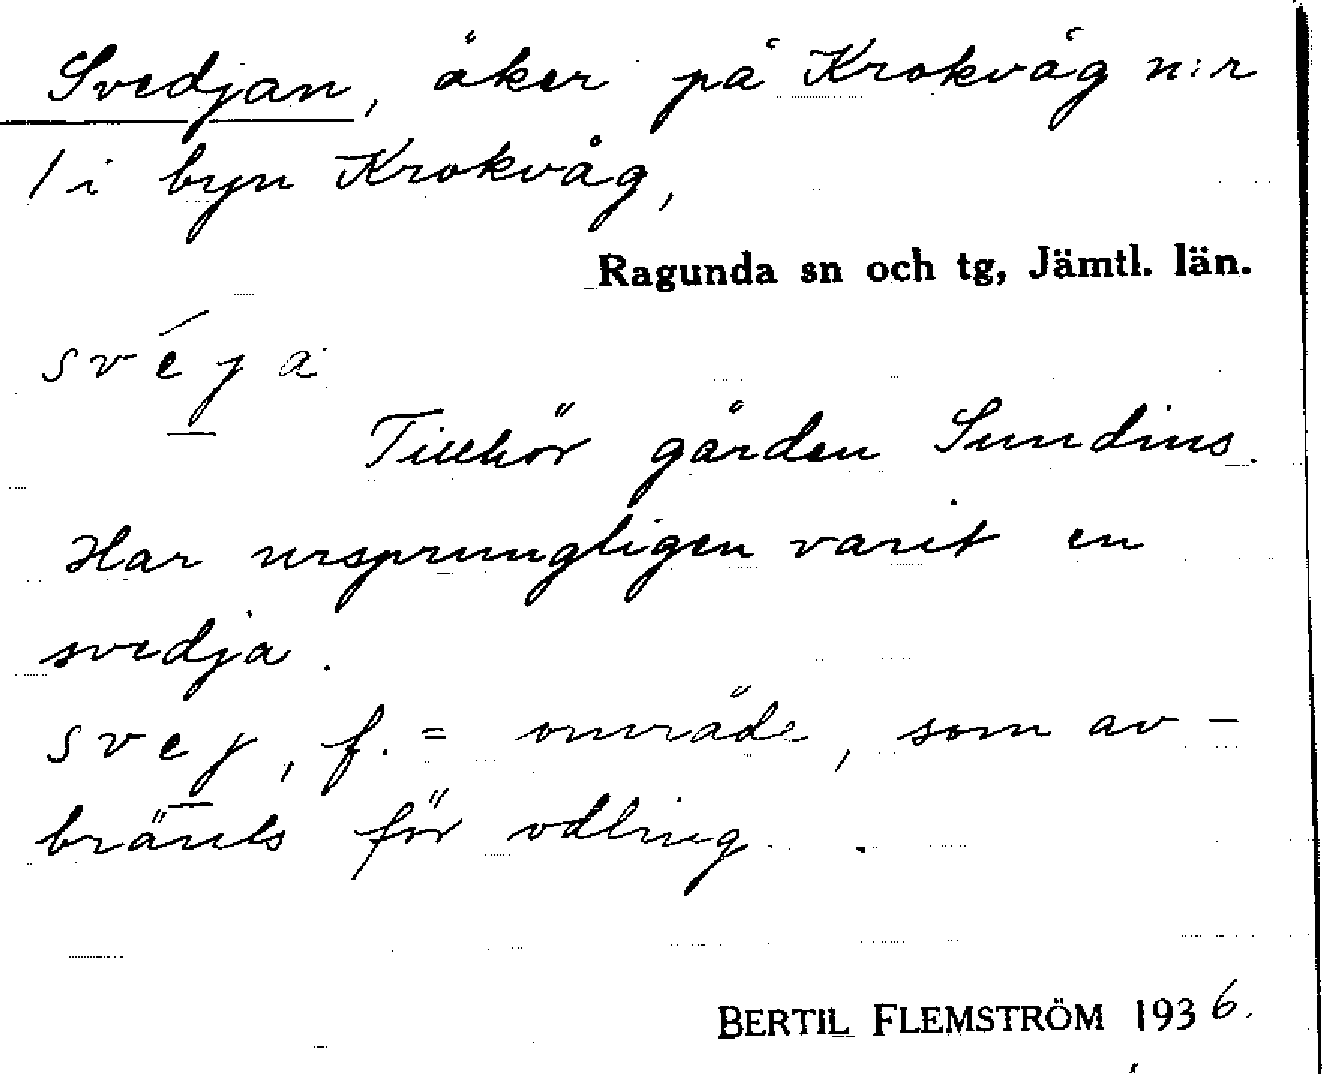 Svedjan, åker på Krokvåg n:r
1 i byn Krokvåg,
Ragunda sn och tg, Jämtl. län.
svéja
Tillhör gården Sundins.
Har ursprungligen varit en
svedja.
svej, f. = område, som av-
bränts för odling.
BERTIL FLEMSTRÖM 1936.